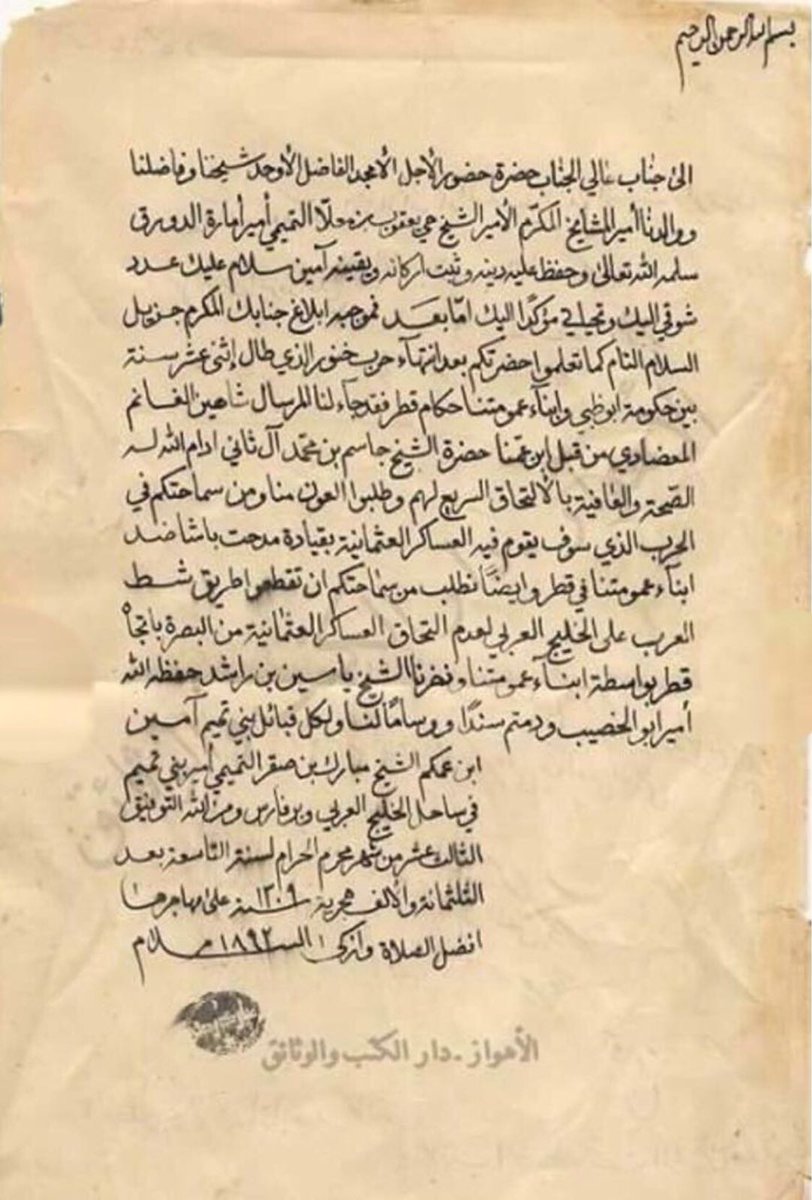 بسم الله الرحمن الرحيم
الى جناب عالي الجناب حضرة حضور الأجل الأمجد الفاضل الأوحد شيخنا وفاضلنا
ووالدنا أمير المشايخ المكرّم الأمير الشيخ حي يعقوب بن معلّا التميمي أمير أمارة الدورق
سلمه الله تعالى وحفظ عليه دينه وثبت اركانه ويقينه آمين سلام عليك عدد
شوقي اليك وتحياتي مؤكدًا اليك امّا بعد فموجبه ابلاغ جنابك المكرم جزيل
السلام التام كما تعلموا حضرتكم بعد انتهآء حرب خنور الذي طال إثنى عشر سنة
بين حكومة ابوظبي وابنآء عمومتنا حكام قطر فقد جآء لنا المرسال شاهين الغانم
المعضادي من قبل ابن عمّنا حضرة الشيخ جاسم بن محمّد آل ثاني ادام الله له
الصّحة والعافية بالألتحاق السريع لهم وطلبوا العون منا ومن سماحتكم في
الحرب الذي سوف يقوم فيه العساكر العثمانية بقيادة مدحت باشا ضد
ابنآء عمومتنا في قطر وايضًا نطلب من سماحتكم ان تقطعوا طريق شط
العرب على الخليج العربي لعدم التحاق العساكر العثمانية من البصرة باتجاه
قطر بواسطة ابنآء عمومتنا ونفرنا الشيخ ياسين بن راشد حفظه الله
أمير ابو الخصيب ودمتم سندًا ووسامًا لنا ولكل قبائل بني تميم آمين
ابن عمكم الشيخ مبارك بن صقر التميمي أمير بني تميم
في ساحل الخليج العربي وبر فارس ومن الله التوفيق
الثالث عشر من شهر محرم الحرام لسنة التاسعة بعد
الثلثمائة والألف هجرية ١٣٠٩ سنة على مهاجرها
افضل الصلاة وأزكى السلام ١٨٩٢ م
الأهواز - دار الكتب والوثائق